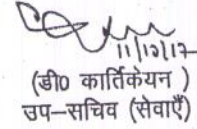 11/12/17
(डी0 कार्तिकेयन )
उप-सचिव (सेवाएँ)